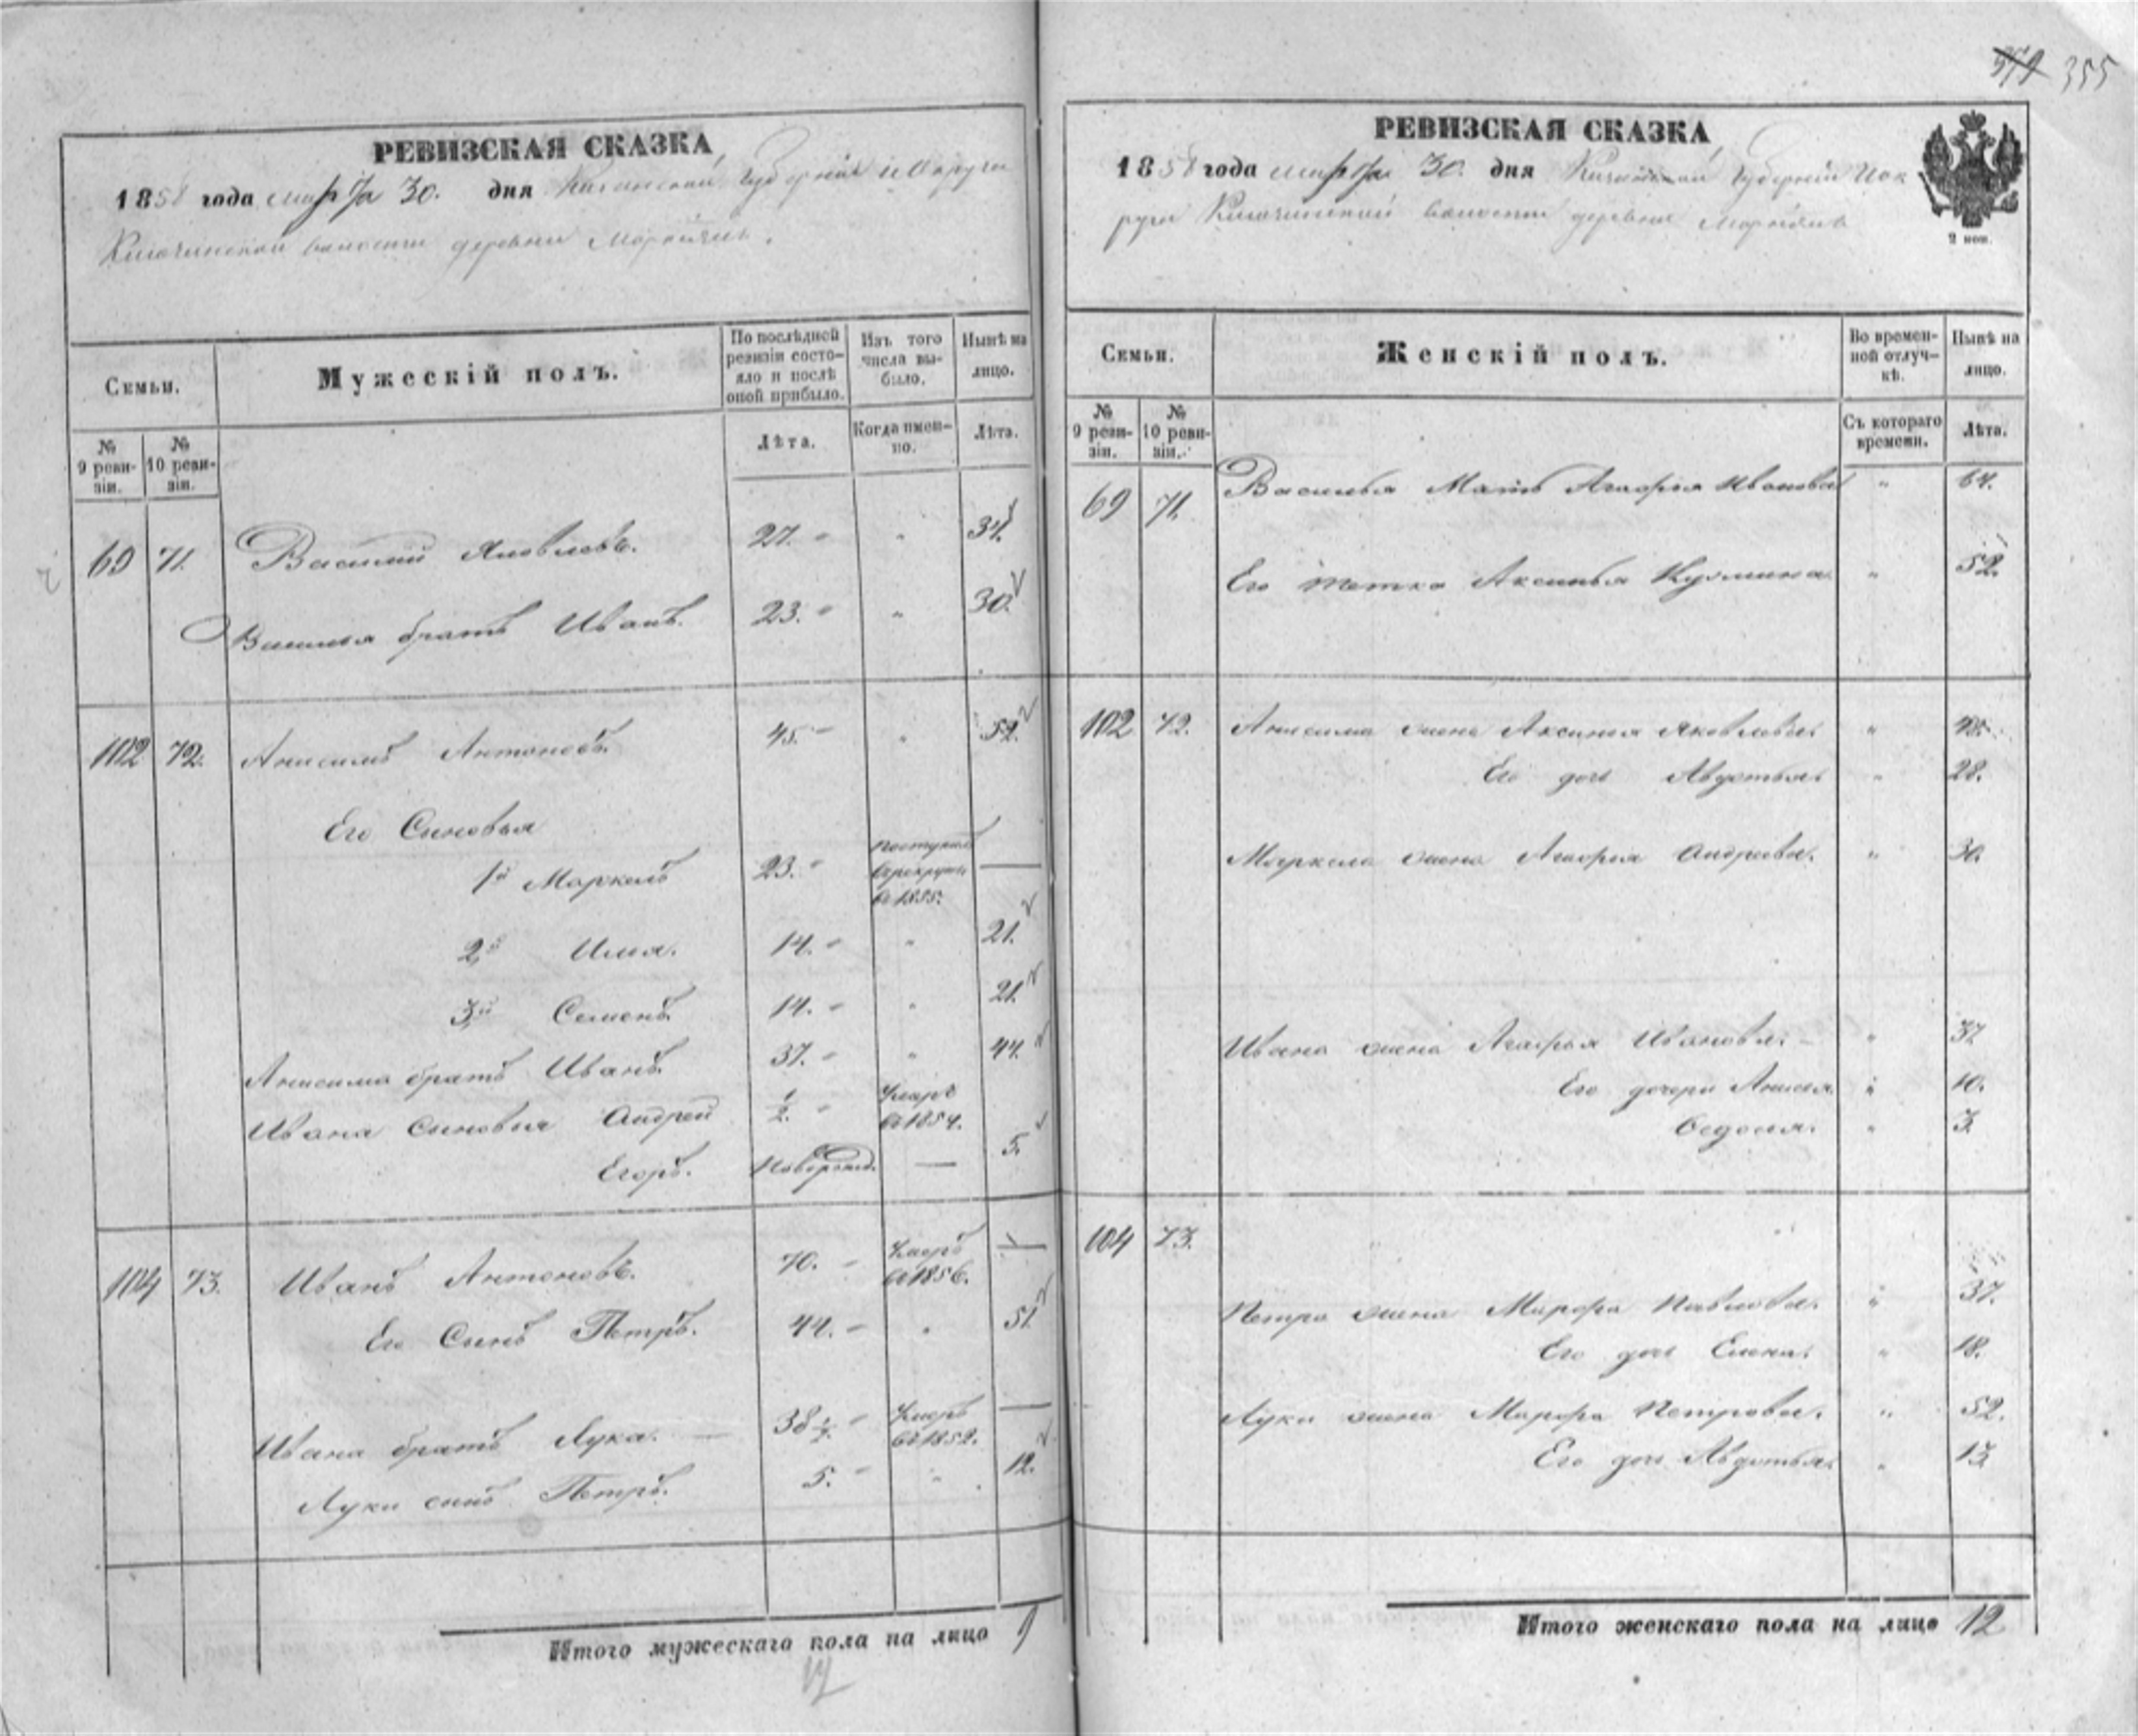 РЕВИЗСКАЯ СКАЗКА
1858 года марта 30. дня Казанской Губерніи и Округи
Ключинской волости деревни
Семьи.
Мужескій полъ.
По послѣдней ревизіи состояло и послѣ оной прибыло.
Изъ того числа выбыло.
Нынѣ на лицо.
№ 9 ревизіи.
№ 10 ревизіи.
Лѣта.
Когда именно.
Лѣта.
69 71. Василий Яковлевъ. 27. " " 34.
Василья братъ Иванъ. 23. " " 30.
102 72. Анисимъ Антоновъ. 45. " " 52.
Его Сыновья
1й Маркелъ 23. " поступилъ в рекруты въ 1855. —
2й Илья. 14. " " 21.
3й Семенъ. 14. " " 21.
Анисима братъ Иванъ. 37. " " 44.
Ивана Сыновья Андрей 1/2. " Умеръ въ 1854.
Егоръ. Новорожд. — 5.
104 73. Иванъ Антоновъ. 70. " Умеръ въ 1856. —
Его Сынъ Петръ. 44. " " 51.
Ивана братъ Лука. — 38 1/2. " Умеръ въ 1852. —
Луки сынъ Петръ. 5. " " 12.
Итого мужескаго пола на лицо 9
355
РЕВИЗСКАЯ СКАЗКА
1858 года марта 30. дня Казанской Губерніи и Ок
руги Ключинской волости деревни
2 коп.
Семьи.
Женскій полъ.
Во временной отлучкѣ.
Нынѣ на лицо.
№ 9 ревизіи.
№ 10 ревизіи.
Съ котораго времени.
Лѣта.
69 71. Василья Мать Агафья Иванова " 64.
Его тетка Аксинья Кузмина. " 52.
102 72. Анисима жена Аксинья Яковлева. "
Его дочь Авдотья. " 28.
Маркела жена Агафья Андреева. " 30.
Ивана жена Агафья Иванова. — " 37
Его дочери Анисья. " 10.
Федосья. " 3.
104 73.
Петра жена Марфа Павлова. " 37.
Его дочь Елена. " 18.
Луки жена Марфа Петрова. " 52.
Его дочь Авдотья. " 13.
Итого женскаго пола на лицо 12